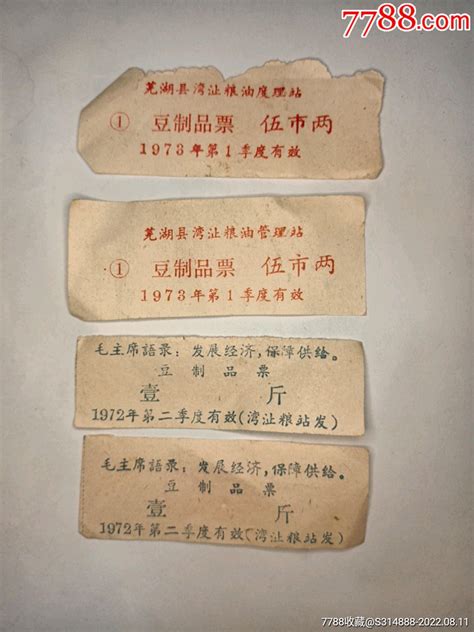 7788.com
芜湖县湾沚粮油度理站
① 豆制品票 伍市两
1973年第1季度有效
芜湖县湾沚粮油管理站
① 豆制品票 伍市两
1973年第1季度有效
毛主席語录：发展经济，保障供给。
豆制品票
壹 斤
1972年第二季度有效(湾沚粮站发)
毛主席語录：发展经济，保障供给。
豆制品票
壹 斤
1972年第二季度有效(湾沚粮站发)
7788收藏@S314888-2022.08.11